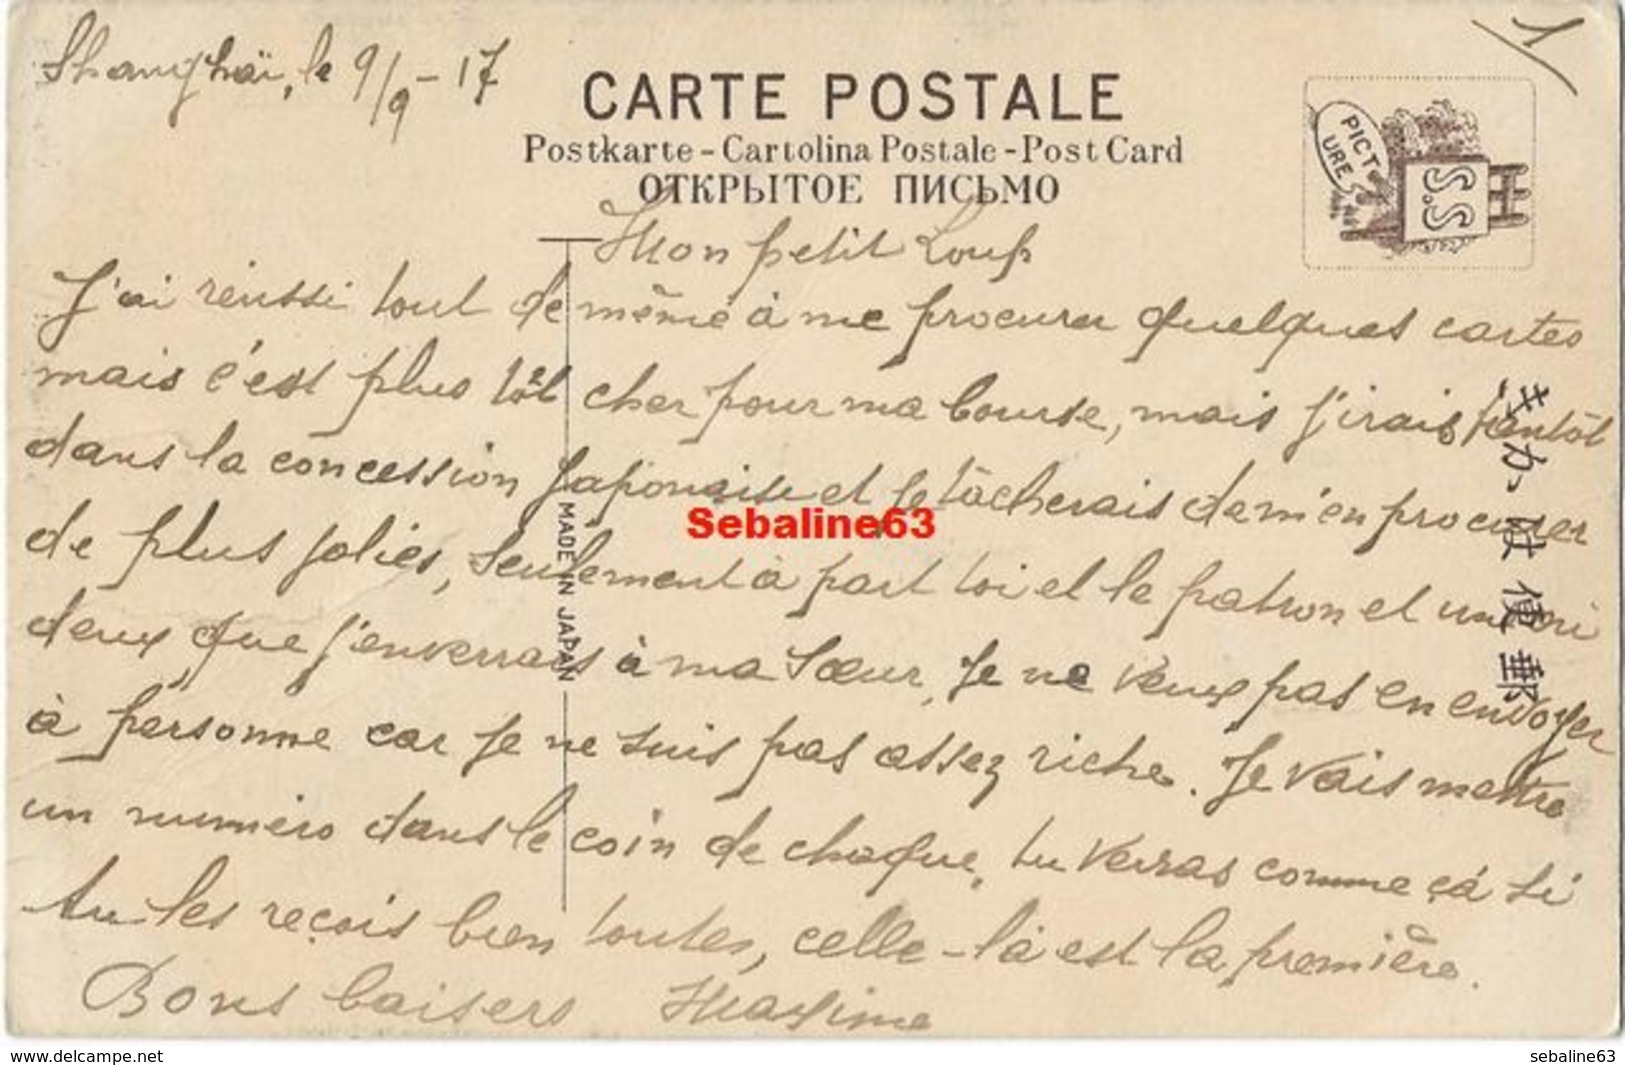 Shanghaï, le 9/9 - 17
1
CARTE POSTALE
Postkarte - Cartolina Postale - Post Card
ОТКРЫТОЕ ПИСЬМО
PICTURE
S.S
Mon petit Loup
J'ai réussi tout de même à me procurer quelques cartes
mais c'est plus tôt cher pour ma bourse, mais j'irais bientôt
dans la concession Japonaise et je tâcherais de m'en procurer
de plus jolies, seulement à part toi et le patron et une ou
deux que j'enverrais à ma Sœur, Je ne veux pas en envoyer
à personne car je ne suis pas assez riche. Je vais mettre
un numéro dans le coin de chaque, tu verras comme çá si
tu les reçois bien toutes, celle-là est la première.
Bons baisers Maxime
MADE IN JAPAN
郵便はかき
Sebaline63
www.delcampe.net
sebaline63